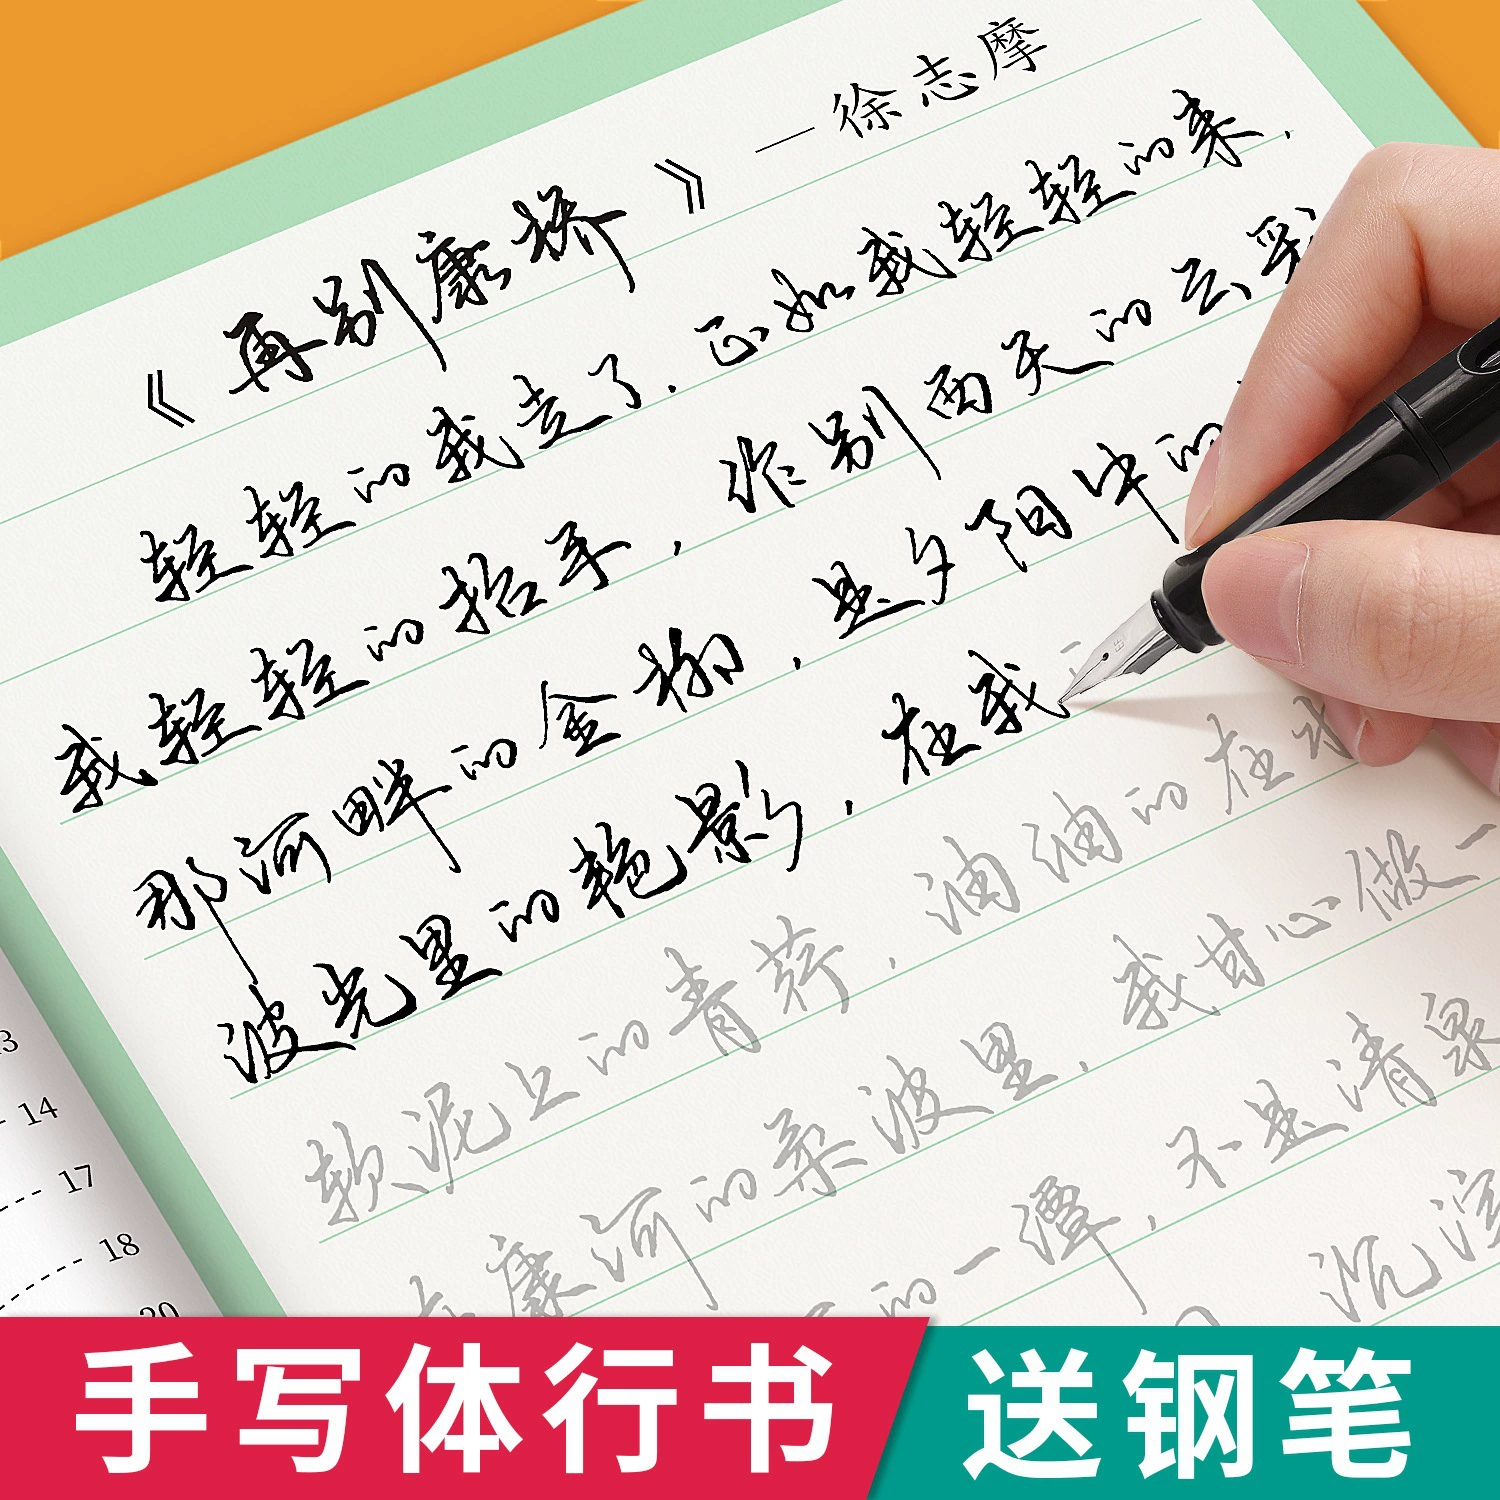 《再别康桥》—徐志摩
轻轻的我走了.正如我轻轻的来.
我轻轻的招手,作别西天的云彩
那河畔的金柳.是夕阳中的
波光里的艳影.在我
软泥上的青荇.油油的在水
康河的柔波里.我甘心做一
的一潭.不是清泉
沉淀
14
17
18
20
手写体行书
送钢笔